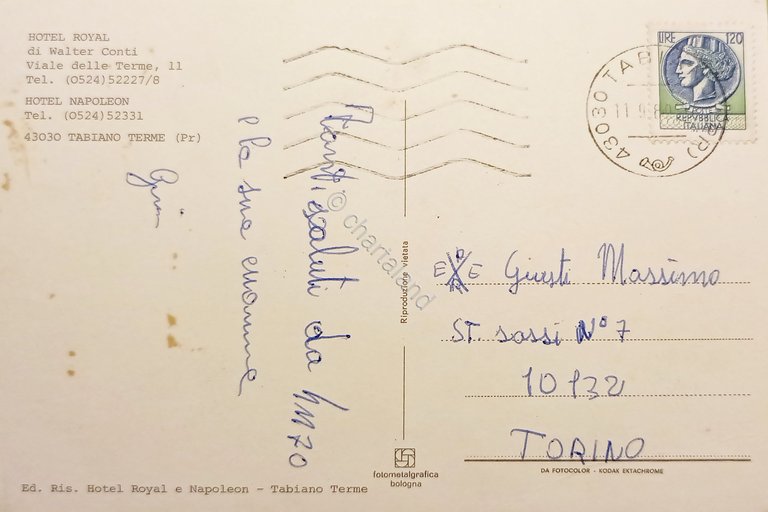 HOTEL ROYAL
di Walter Conti
Viale delle Terme, 11
Tel. (0524)52227/8
HOTEL NAPOLEON
Tel. (0524)52331
43030 TABIANO TERME (Pr)
Tanti saluti da
e la sua
LIRE 120
REPVBBLICA
ITALIANA
43030 TAB
© chartaland
Riproduzione vietata
Giusti Massimo
ST. sassi N° 7
10132
TORINO
fotometalgrafica
bologna
DA FOTOCOLOR - KODAK EKTACHROME
Ed. Ris. Hotel Royal e Napoleon - Tabiano Terme